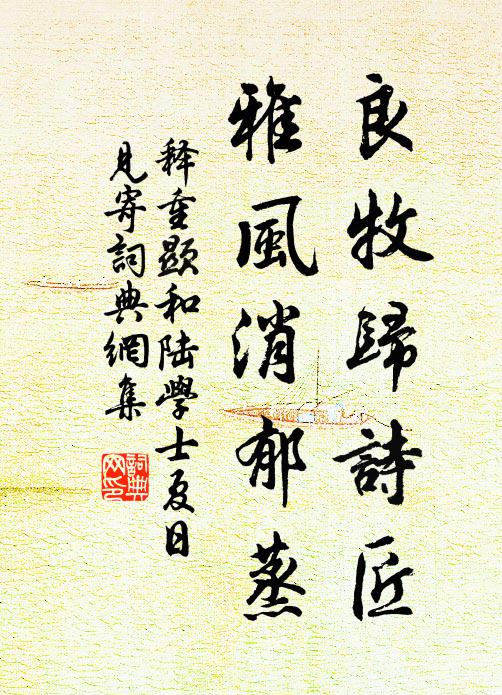 良牧歸詩匠
雅風消郁蒸
释重顯和陆學士夏日
見寄詞典網集
詞典
网印